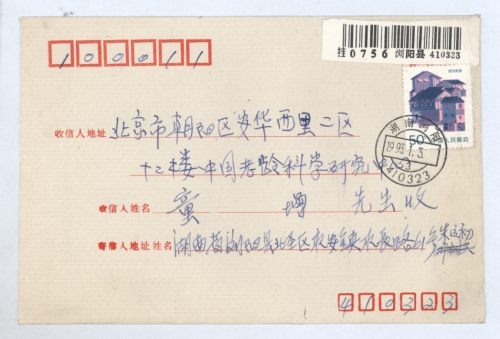 挂 0756 浏阳县 410323
100011
50
中国人民邮政
湖南浏阳
1993.1.3
410323
收信人地址 北京市朝阳区安华西里二区
十二楼 中国老龄科学研究中心
收信人姓名 童 增 先生收
寄信人地址姓名 湖南省浏阳县北盛区永安镇永长路61号
410323